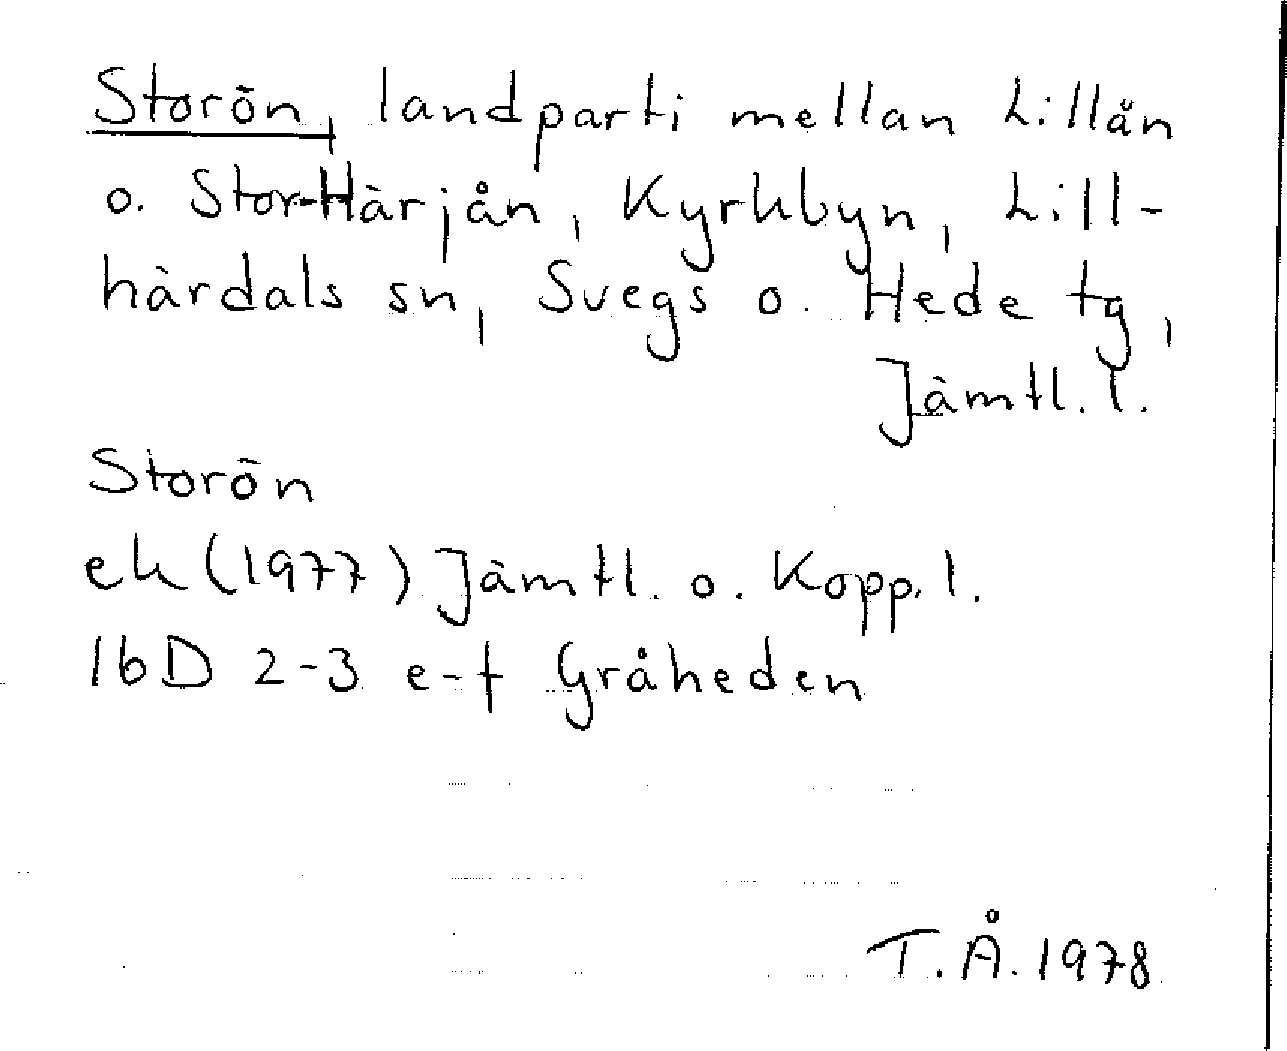 Storön, landparti mellan Lillån
o. Stor-Härjån, Kyrkbyn, Lill-
härdals sn, Svegs o. Hede tg,
Jämtl. l.
Storön
ek (1977) Jämtl. o. Kopp. l.
16D 2-3 e-f Gråheden
T.Å. 1978